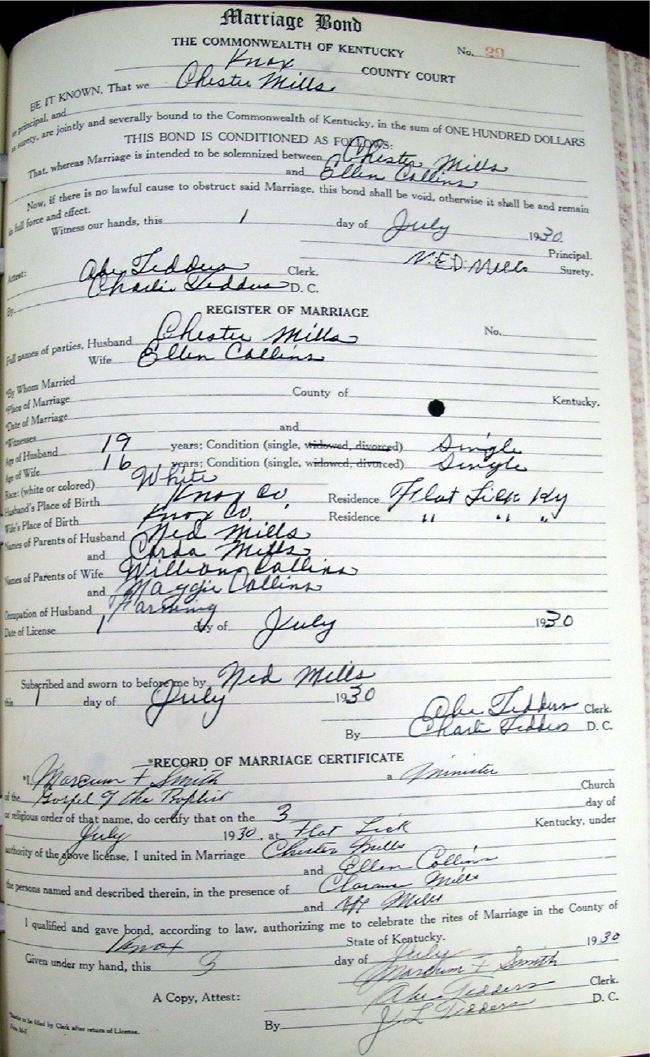 Marriage Bond
THE COMMONWEALTH OF KENTUCKY No. 29
Knox COUNTY COURT
BE IT KNOWN, That we Chester Mills
as principal, and
as surety, are jointly and severally bound to the Commonwealth of Kentucky, in the sum of ONE HUNDRED DOLLARS
THIS BOND IS CONDITIONED AS FOLLOWS:
That, whereas Marriage is intended to be solemnized between Chester Mills
and Ellen Collins
Now, if there is no lawful cause to obstruct said Marriage, this bond shall be void, otherwise it shall be and remain
in full force and effect.
Witness our hands, this 1 day of July 1930
Principal.
N.ED. Mills Surety.
Attest: Abe Tedders Clerk.
By Charlie Tedders D. C.
REGISTER OF MARRIAGE
Full names of parties, Husband Chester Mills No.
Wife Ellen Collins
*By Whom Married
*Place of Marriage County of Kentucky.
*Date of Marriage
*Witnesses and
Age of Husband 19 years; Condition (single, widowed, divorced) Single
Age of Wife 16 years; Condition (single, widowed, divorced) Single
Race: (white or colored) White
Husband's Place of Birth Knox Co Residence Flat Lick Ky
Wife's Place of Birth Knox Co Residence " " "
Names of Parents of Husband Ned Mills
and Mills
Names of Parents of Wife William Collins
and Maggie Collins
Occupation of Husband Farming
Date of License 1 day of July 1930
Subscribed and sworn to before me by Ned Mills
this 1 day of July 1930
Abe Tedders Clerk.
By Charlie Tedders D. C.
*RECORD OF MARRIAGE CERTIFICATE
*I, Marcum F Smith a Minister
of the Gospel of the Baptist Church
or religious order of that name, do certify that on the 3 day of
July 1930, at Flat Lick Kentucky, under
authority of the above license, I united in Marriage Chester Mills
and Ellen Collins
the persons named and described therein, in the presence of Mills
and Mills
I qualified and gave bond, according to law, authorizing me to celebrate the rites of Marriage in the County of
Knox State of Kentucky.
Given under my hand, this 3 day of July 1930
Marcum F Smith
A Copy, Attest: Abe Tedders Clerk.
By J L Tedders D. C.
to be filled by Clerk after return of License.